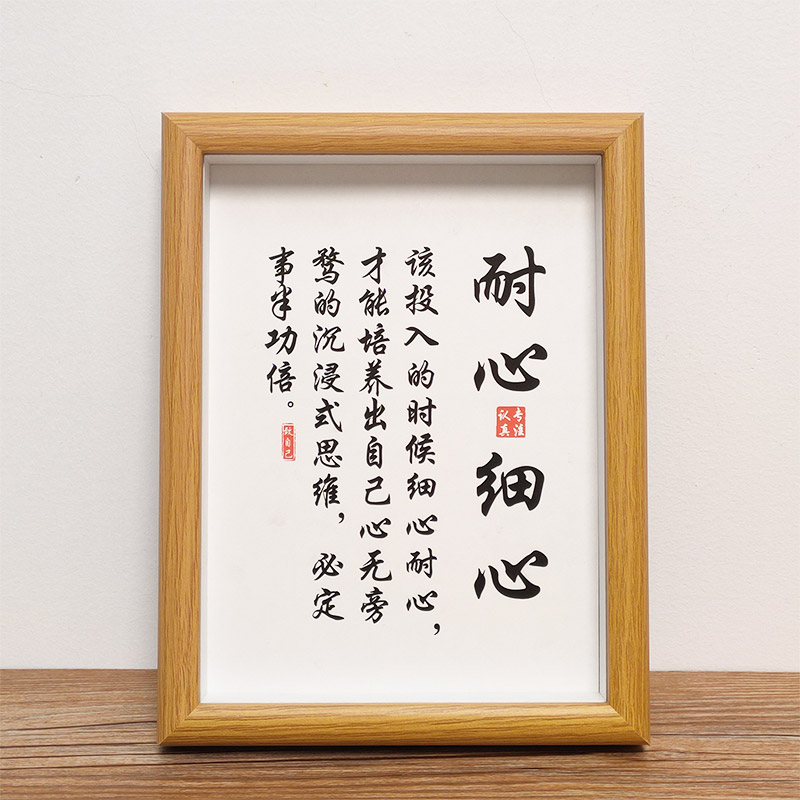 耐心
专注
认真
细心
该投入的时候细心耐心，
才能培养出自己心无旁
鹜的沉浸式思维，必定
事半功倍。
致自己